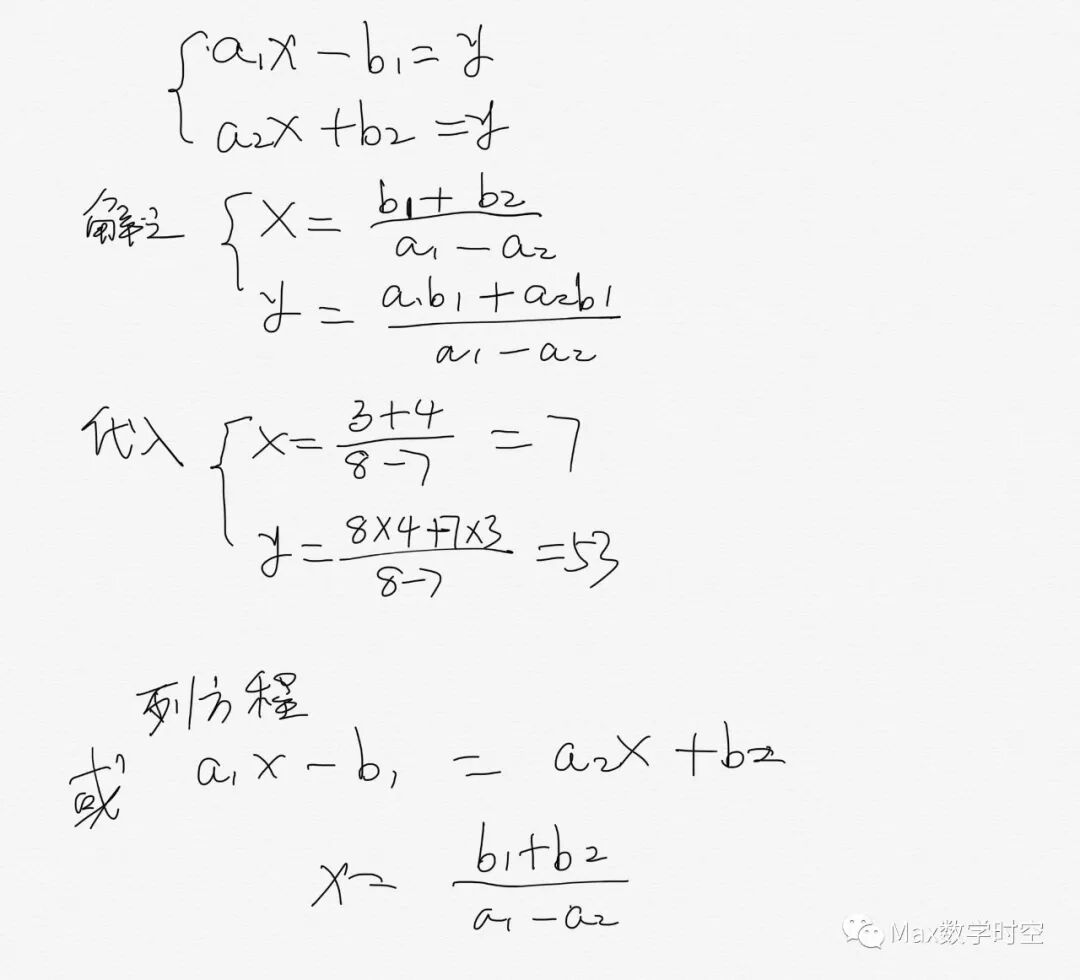 a₁x − b₁ = y
a₂x + b₂ = y
解之 x = (b₁ + b₂)/(a₁ − a₂)
y = (a₁b₁ + a₂b₁)/(a₁ − a₂)
代入 x = (3+4)/(8−7) = 7
y = (8×4+7×3)/(8−7) = 53
列方程
或 a₁x − b₁ = a₂x + b₂
x = (b₁+b₂)/(a₁−a₂)
Max数学时空